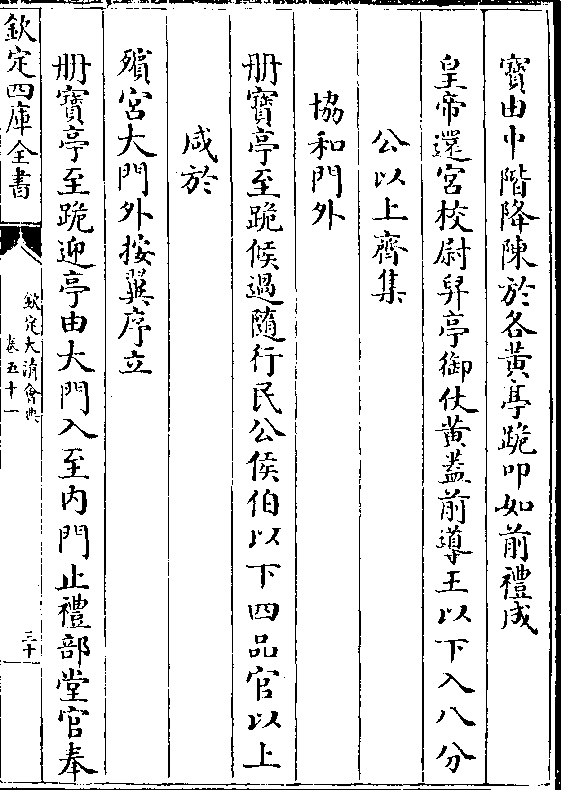 寶由中階降陳於各黃亭跪叩如前禮成
皇帝還宮校尉舁亭御仗黃蓋前導王以下入八分
公以上齊集
協和門外
册寶亭至跪候過隨行民公侯伯以下四品官以上
咸於
殯宮大門外按翼序立
册寶亭至跪迎亭由大門入至內門止禮部堂官奉
欽定四庫全書
欽定大清會典
卷五十一
三十